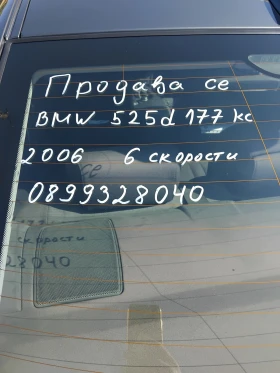 Продава се
BMW 525d 177 кс
2006 6 скорости
0899328040